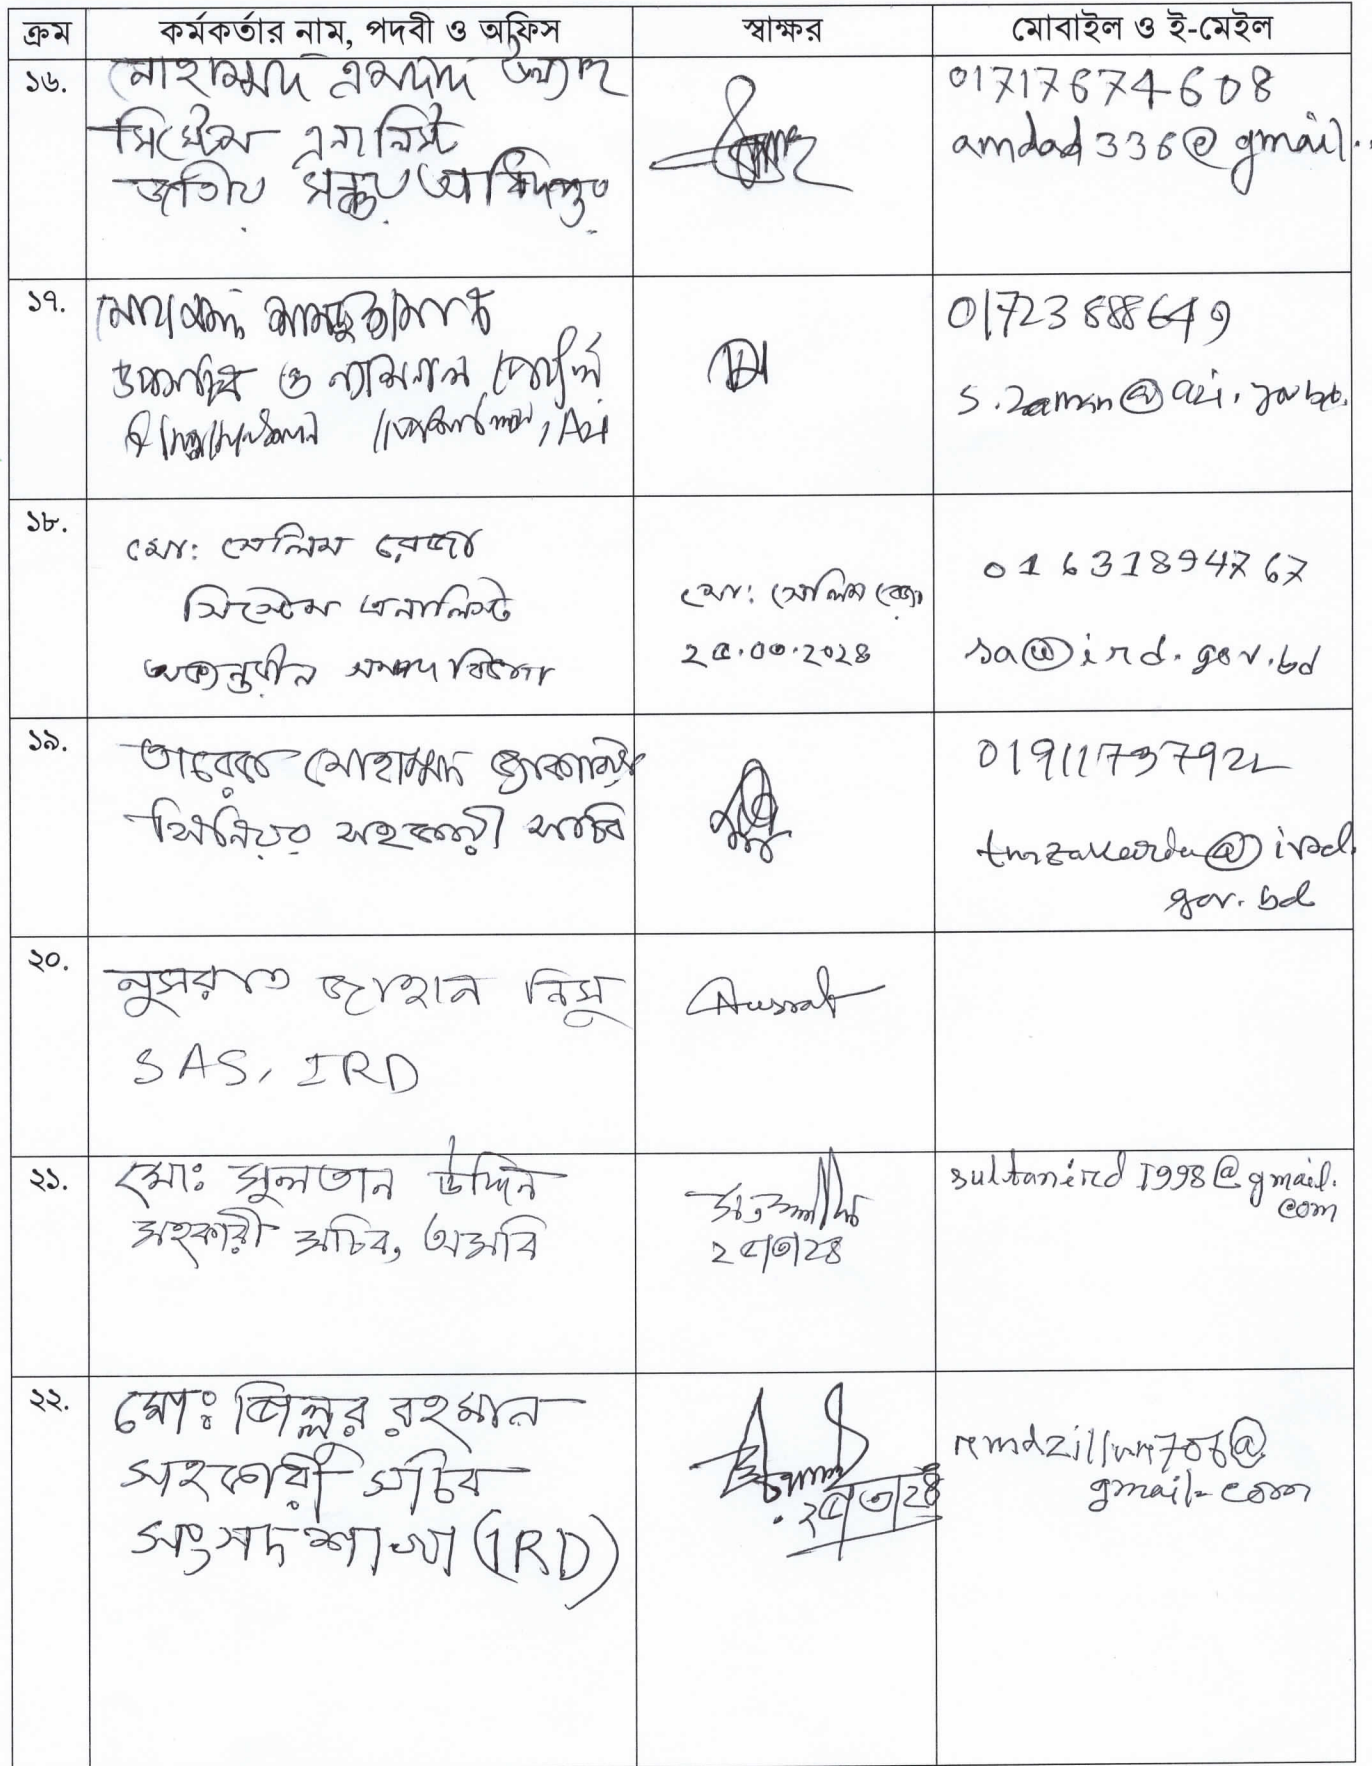 ক্রম কর্মকর্তার নাম, পদবী ও অফিস স্বাক্ষর মোবাইল ও ই-মেইল
১৬.
মোহাম্মদ এমদাদ উল্যাহ
সিস্টেম এনালিস্ট
জাতীয় সঞ্চয় অধিদপ্তর
01717674608
amdad336@gmail.
১৭.
মোহাম্মদ
উপসচিব ও ন্যাশনাল পোর্টাল
, A2i
01723888649
s.zaman@a2i.gov.bd.
১৮.
মো: সেলিম রেজা
সিস্টেম এনালিস্ট
অভ্যন্তরীণ সম্পদ বিভাগ
মো: সেলিম রেজা
২৫.০৩.২০২৪
01631894767
sa@ird.gov.bd
১৯.
তারেক মোহাম্মদ জাকারিয়া
সিনিয়র সহকারী সচিব
01911737922
@ird.
gov.bd
২০.
নুসরাত জাহান নিসু
SAS, IRD
Nusrat
২১.
মো: সুলতান উদ্দিন
সহকারী সচিব, অসবি
২৫/৩/২৪
sultanird1998@gmail.
com
২২.
মো: জিল্লুর রহমান
সহকারী সচিব
সংসদ শাখা (IRD)
২৫/৩/২৪
remdzillur706@
gmail.com